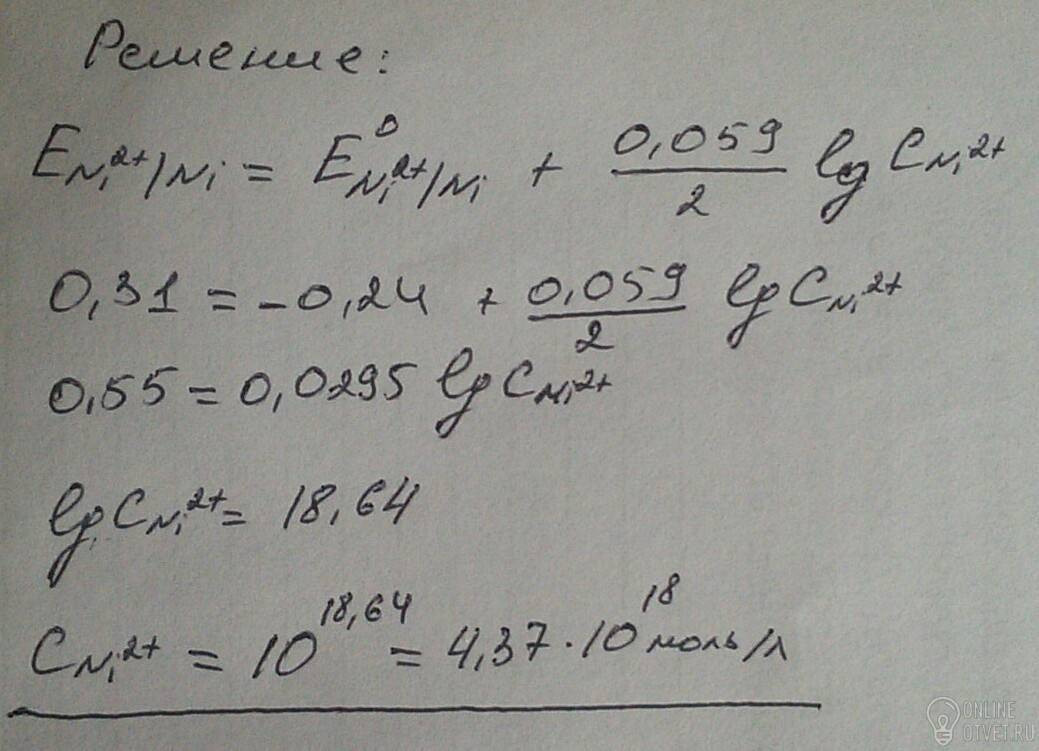 Решение:
E Ni²⁺/Ni = E⁰ Ni²⁺/Ni + 0,059/2 lg C Ni²⁺
0,31 = -0,24 + 0,059/2 lg C Ni²⁺
0,55 = 0,0295 lg C Ni²⁺
lg C Ni²⁺ = 18,64
C Ni²⁺ = 10^18,64 = 4,37 · 10^18 моль/л
ONLINE
OTVET.RU